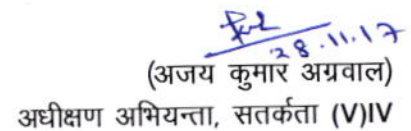 28.11.17
(अजय कुमार अग्रवाल)
अधीक्षण अभियन्ता, सतर्कता (V)IV